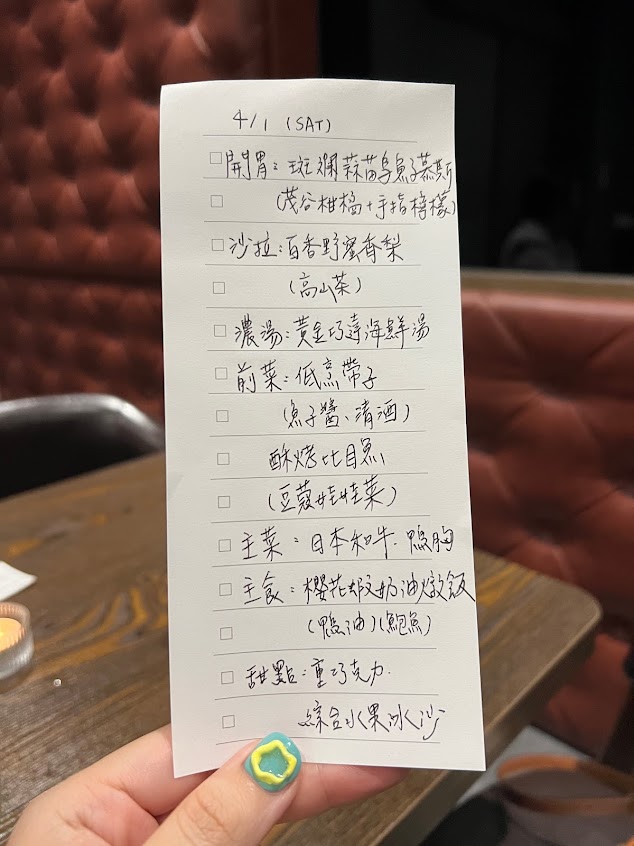 4/1 (SAT)
開胃：斑斕蒜苗烏魚子慕斯
(茂谷柑橘+手指檸檬)
沙拉：百香野蜜香梨
(高山茶)
濃湯：黃金巧達海鮮湯
前菜：低烹帶子
(魚子醬、清酒)
酥烤比目魚
(豆蔻娃娃菜)
主菜：日本和牛.鴨胸
主食：櫻花蝦奶油燉飯
(鴨油)(鮑魚)
甜點：重巧克力.
綜合水果冰沙